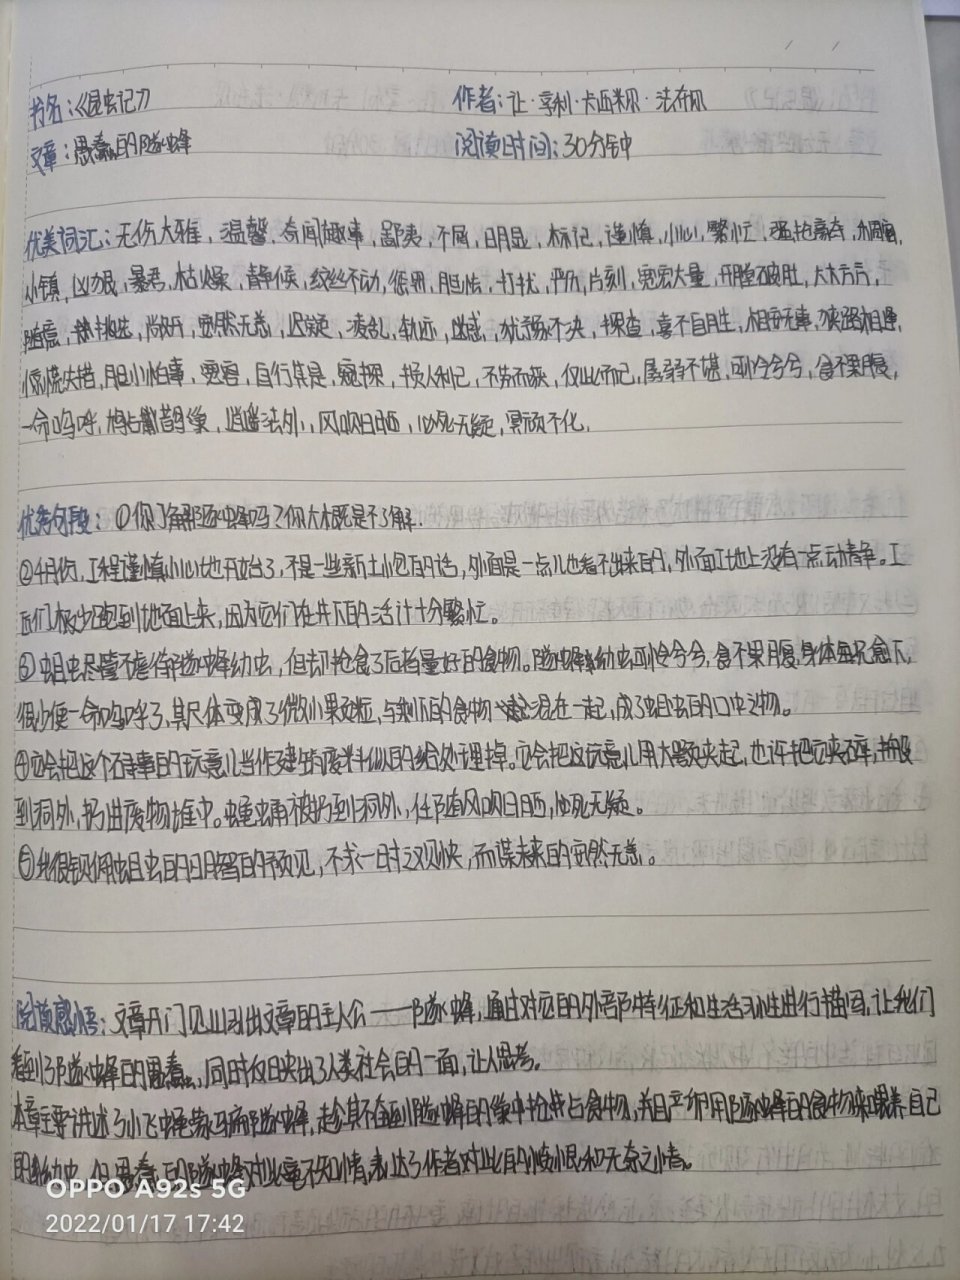 书名:《昆虫记》 作者:让·亨利·卡西米尔·法布尔
文章:愚蠢的隧蜂 阅读时间:30分钟
优美词汇:无伤大雅,温馨,奇闻趣事,鄙夷,不屑,明显,标记,谨慎,小心,繁忙,强抢豪夺,
小镇,凶狠,暴君,枯燥,静候,纹丝不动,惩罚,胆怯,打扰,严厉,片刻,宽宏大量,开膛破肚,大大方方,
随意,挑选,敞开,安然无恙,迟疑,凌乱,轨迹,迷惑,犹豫不决,探查,喜不自胜,相安无事,狭路相逢,
惊慌失措,胆小怕事,宽容,自行其是,窥探,损人利己,不劳而获,仅此而已,孱弱不堪,可怜兮兮,食不果腹,
一命呜呼,鸠占鹊巢,逍遥法外,风吹日晒,必死无疑,冥顽不化,
优秀句段:①你了解隧蜂吗?你大概是不了解.
②4月份,工程谨慎小心地开始了,不是一些新土小包的话,外面是一点儿也看不出来的,外面工地上没有一点动静。工
匠们极少跑到地面上来,因为它们在井下的活计十分繁忙。
③蛆虫尽管不虐待隧蜂幼虫,但却抢食了后者最好的食物。隧蜂幼虫可怜兮兮,食不果腹,身体每况愈下,
很少便一命呜呼了,其尸体变成了微小果颗粒,与剩下的食物混在一起,成了蛆虫的口中之物。
④它会把这个碍事的玩意儿当作建筑废料似的给处理掉。它会把这玩意儿用大颚夹起,也许把它夹碎,并搬
到洞外,扔进废物堆中。蝇蛹被扔到洞外,任随风吹日晒,必死无疑。
⑤我很钦佩蛆虫的明智的预见,不求一时之欢快,而谋未来的安然无恙。
阅读感悟:文章开门见山引出文章的主人公——隧蜂,通过对它的外部特征和生活习性进行描写,让我们
看到了隧蜂的愚蠢,同时反映出了人类社会的一面,让人思考。
本章主要讲述了小飞蝇隧蜂,趁其不备到隧蜂的巢中抢占食物,并且产卵用隧蜂的食物来喂养自己
的幼虫,但愚蠢的隧蜂对此毫不知情,表达了作者对此的愤恨和无奈之情。
OPPO A92s 5G
2022/01/17 17:42